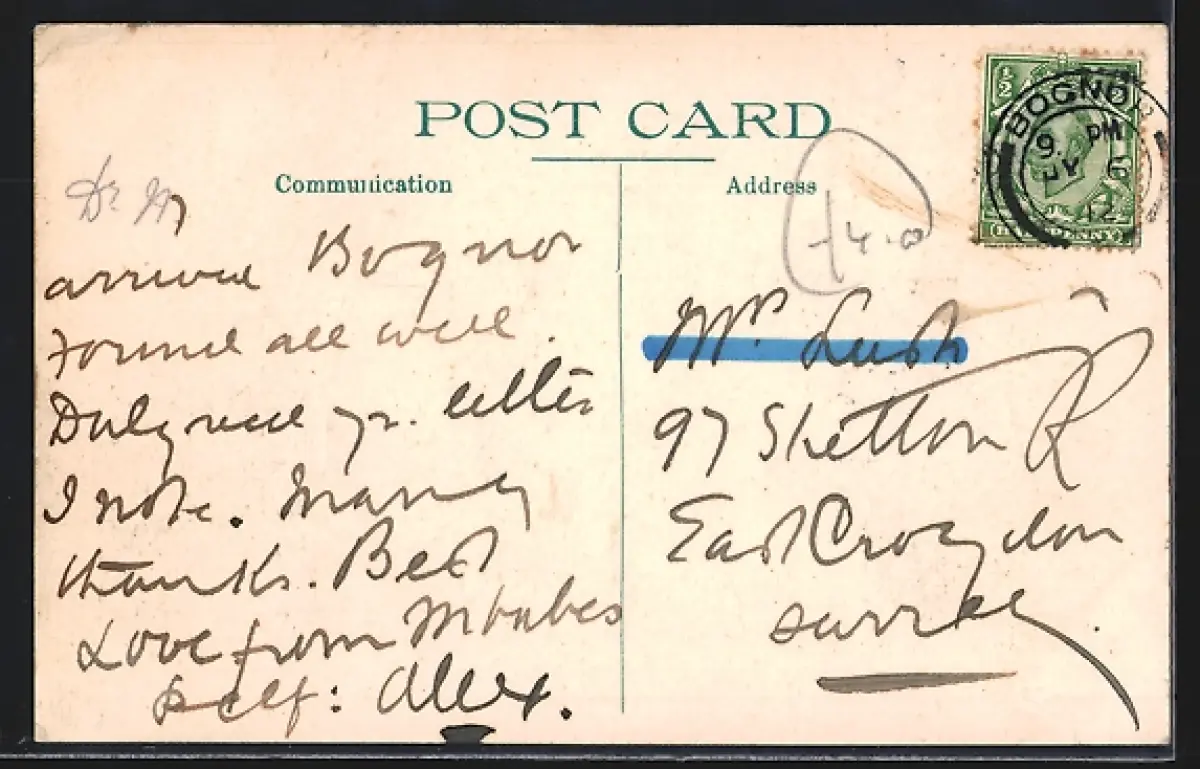 POST CARD
Communication
Address
½
HALFPENNY
BOGNOR
9. PM
JY 6
12
14.0
Dr. M
arrived Bognor
found all well.
Duly recd yr. letter
I note. Many
thanks. Best
Love from M babes
self: Alex.
Mrs Lush
97 Shelton Rd
East Croydon
Surrey.